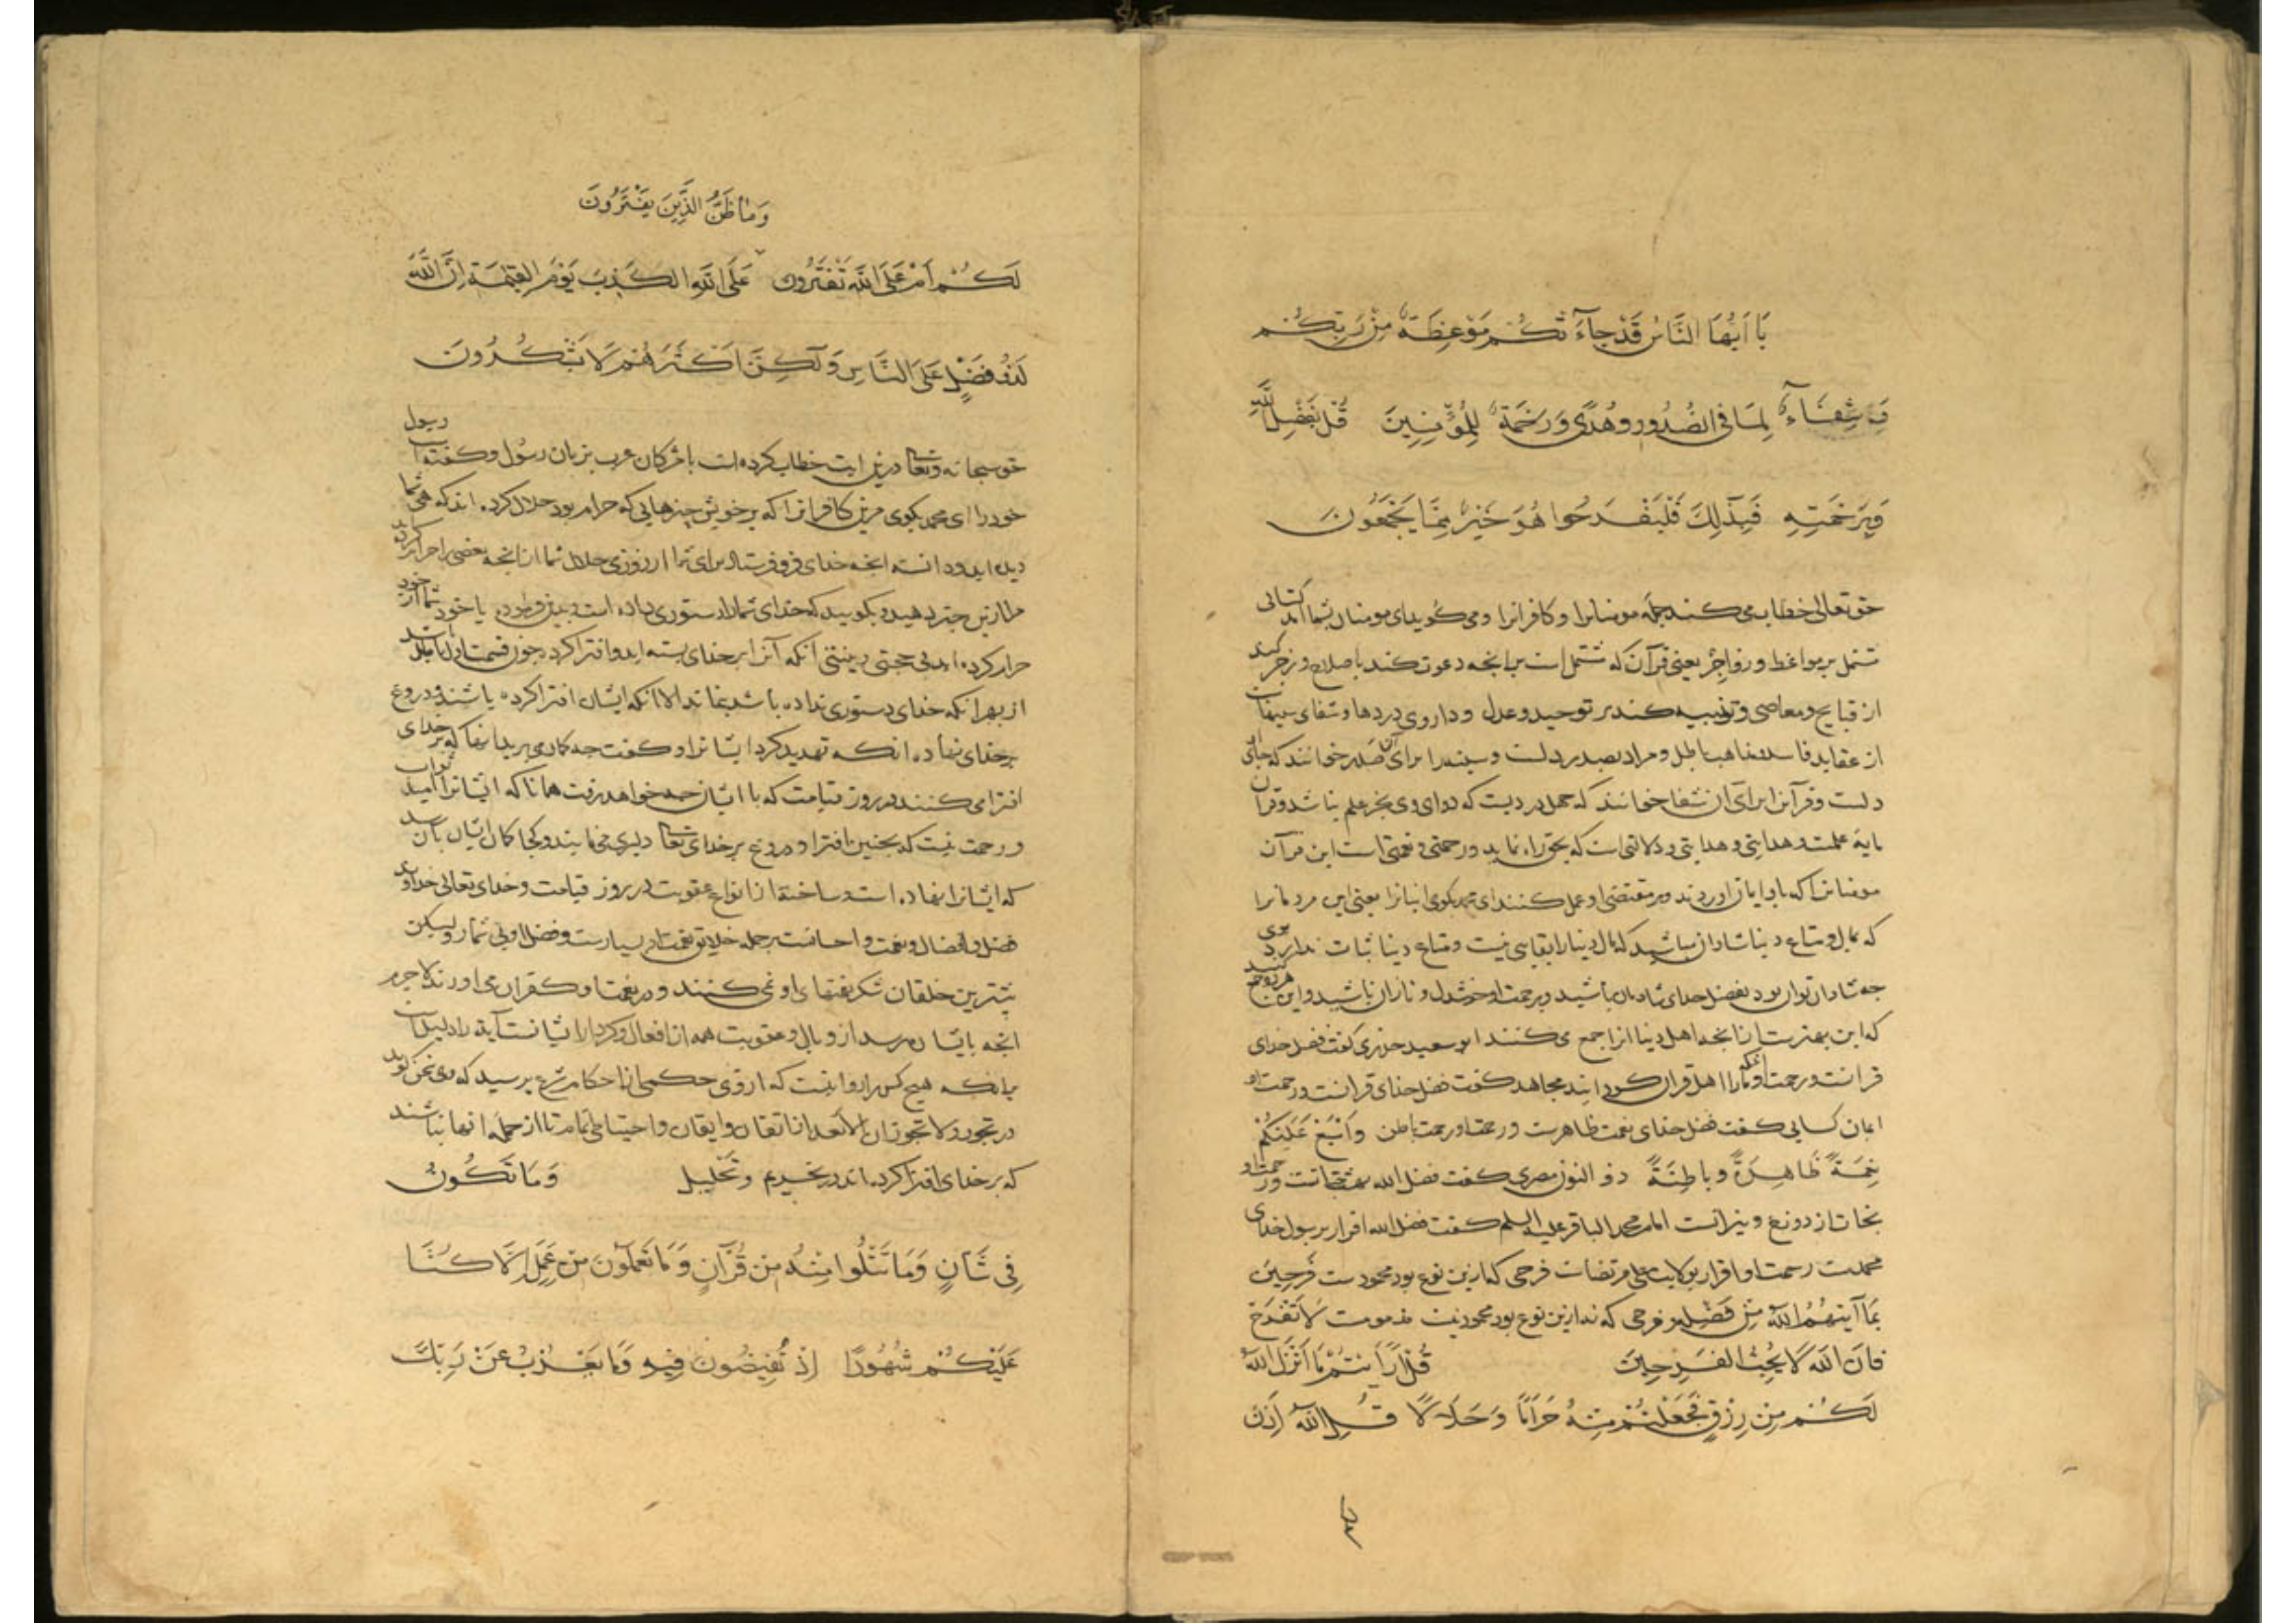 يَا اَيُّهَا النَّاسُ قَدْ جَآءَتْكُمْ مَوْعِظَةٌ مِنْ رَبِّكُمْ
وَشِفَآءٌ لِمَا فِى الصُّدُورِ وَهُدًى وَرَحْمَةٌ لِلْمُؤْمِنِينَ قُلْ بِفَضْلِ اللَّهِ
وَبِرَحْمَتِهِ فَبِذَلِكَ فَلْيَفْرَحُوا هُوَ خَيْرٌ مِمَّا يَجْمَعُونَ
حق تعالی خطاب می کند جمله مومنانرا و کافرانرا و می گوید ای مومنان بشما امد کتابی
مشتمل بر مواعظ و زواجر یعنی قرآن که مشتمل است بر انجه دعوت کند باصلاح و زجر کند
از قبایح و معاصی و تنبیه کند بر توحید و عدل و داروی دردها و شفای سینهاست
از عقاید فاسد و مذاهب باطل و مراد بصدر دلست و سینه را برای آن صدر خوانند که جای
دلست و قرآنرا برای آن شفا خوانند که جهل دردیست که دوای وی بجز علم نباشد و قرآن
مایهٔ علمست و هدایتی و دلالتی است که بحق راه نماید و رحمتی و نعمتی است این قرآن
مومنانرا که بدو ایمان اوردند و بر مقتضی او عمل کنند ای محمد بکوی ایشانرا یعنی این مردمانرا
که بمال و متاع دنیا شادان مباشید که مال دنیا را بقایی نیست و متاع دنیا ثبات ندارد
جه شادان توان بود بفضل خدای شادمان باشید و برحمت او خوشدل و نازان باشید و این
که این بهترست از انجه اهل دنیا انرا جمع می کنند ابو سعید خدری کفت فضل خدای
قرانست و رحمت او انکه مارا اهل قران کردانید مجاهد کفت فضل خدای قرانست و رحمت او
ایمان کسایی کفت فضل خدای نعمت ظاهرست و رحمت او نعمت باطن وَاَسْبَغَ عَلَيْكُمْ
نِعْمَةً ظَاهِرَةً وَبَاطِنَةً ذو النون مصری کفت فضل الله بهشتست و رحمت او
نجات از دوزخ و نیرانست امام محمد الباقر علیه السلم کفت فضل الله اقرار برسول خدای
محمدست رحمت او اقرار بولایت علی مرتضاست فرحی که ازین نوع بود محمودست فَرِحِينَ
بِمَا آتَيهُمُ اللَّهُ مِنْ فَضْلِهِ و فرحی که نه ازین نوع بود محمود نیست مذمومست لَا تَفْرَحْ
فَاِنَّ اللَّهَ لَا يُحِبُّ الْفَرِحِينَ قُلْ اَرَاَيْتُمْ مَا اَنْزَلَ اللَّهُ
لَكُمْ مِنْ رِزْقٍ فَجَعَلْتُمْ مِنْهُ حَرَامًا وَحَلَالًا قُلْ اللَّهُ اَذِنَ
وَمَا ظَنُّ الَّذِينَ يَفْتَرُونَ
لَكُمْ اَمْ عَلَى اللَّهِ تَفْتَرُونَ عَلَى اللَّهِ الْكَذِبَ يَوْمَ الْقِيمَةِ اِنَّ اللَّهَ
لَذُو فَضْلٍ عَلَى النَّاسِ وَلَكِنَّ اَكْثَرَهُمْ لَا يَشْكُرُونَ
حق سبحانه و تعالی درین ایت خطاب کرده است با مشرکان عرب بر زبان رسول و کفت رسول
خود را ای محمد بکوی مرین کافرانرا که بر خویش چیزهایی که حرام بود حلال کرده اند که هیچ شما
دیده اید و دانسته انجه خدای فرو فرستاد برای شما از روزی حلال شما از انجه بعضی را حرام
مرا ازین خبر دهید و بکویید که خدای شما را دستوری داده است یا خود شما از خود
حرام کرده اید بی حجتی و بینتی انکه آنرا بر خدای بسته اید و افترا کرده چون قسمت اول باطل
از بهر انکه خدای دستوری نداده باشد نماند الا انکه ایشان افترا کرده باشند و دروغ
بر خدای نهاده انکه تهدید کرد ایشانرا و کفت جه کمان می برید اینها که بر خدای
افترا می کنند در روز قیامت که با ایشان جه خواهد رفت همانا که ایشانرا امید ثواب
و رحمت نیست که بچنین افترا و دروغ بر خدای تعالی دلیری می نمایند و کجا کمان ایشان بآن رسد
که ایشانرا نهاده است و ساخته از انواع عقوبت در روز قیامت و خدای تعالی خداوند
فضل و افضال و نعمت و احسانست بر جمله خلایق نعمت او بسیارست و فضل او بی شمار و لیکن
بیشترین خلقان شکر نعمتهای او نمی کنند و در نعمت او کفران می اورند لاجرم
انجه بایشان می رسد از وبال و عقوبت همه از افعال و کردار ایشانست آیة را دلیلست
بر انکه هیچ کس را روا نیست که از وی حکمی از احکام شرع پرسید که وی سخن کوید
در تجوز و لا تجوز ان الا بعد از اتقان و ایقان و احتیاطی تمام تا از جمله انها نباشند
که بر خدای افترا کرده اند در تحریم و تحلیل وَمَا تَكُونُ
فِى شَاْنٍ وَمَا تَتْلُوا مِنْهُ مِنْ قُرْآنٍ وَلَا تَعْمَلُونَ مِنْ عَمَلٍ اِلَّا كُنَّا
عَلَيْكُمْ شُهُودًا اِذْ تُفِيضُونَ فِيهِ وَمَا يَعْزُبُ عَنْ رَبِّكَ